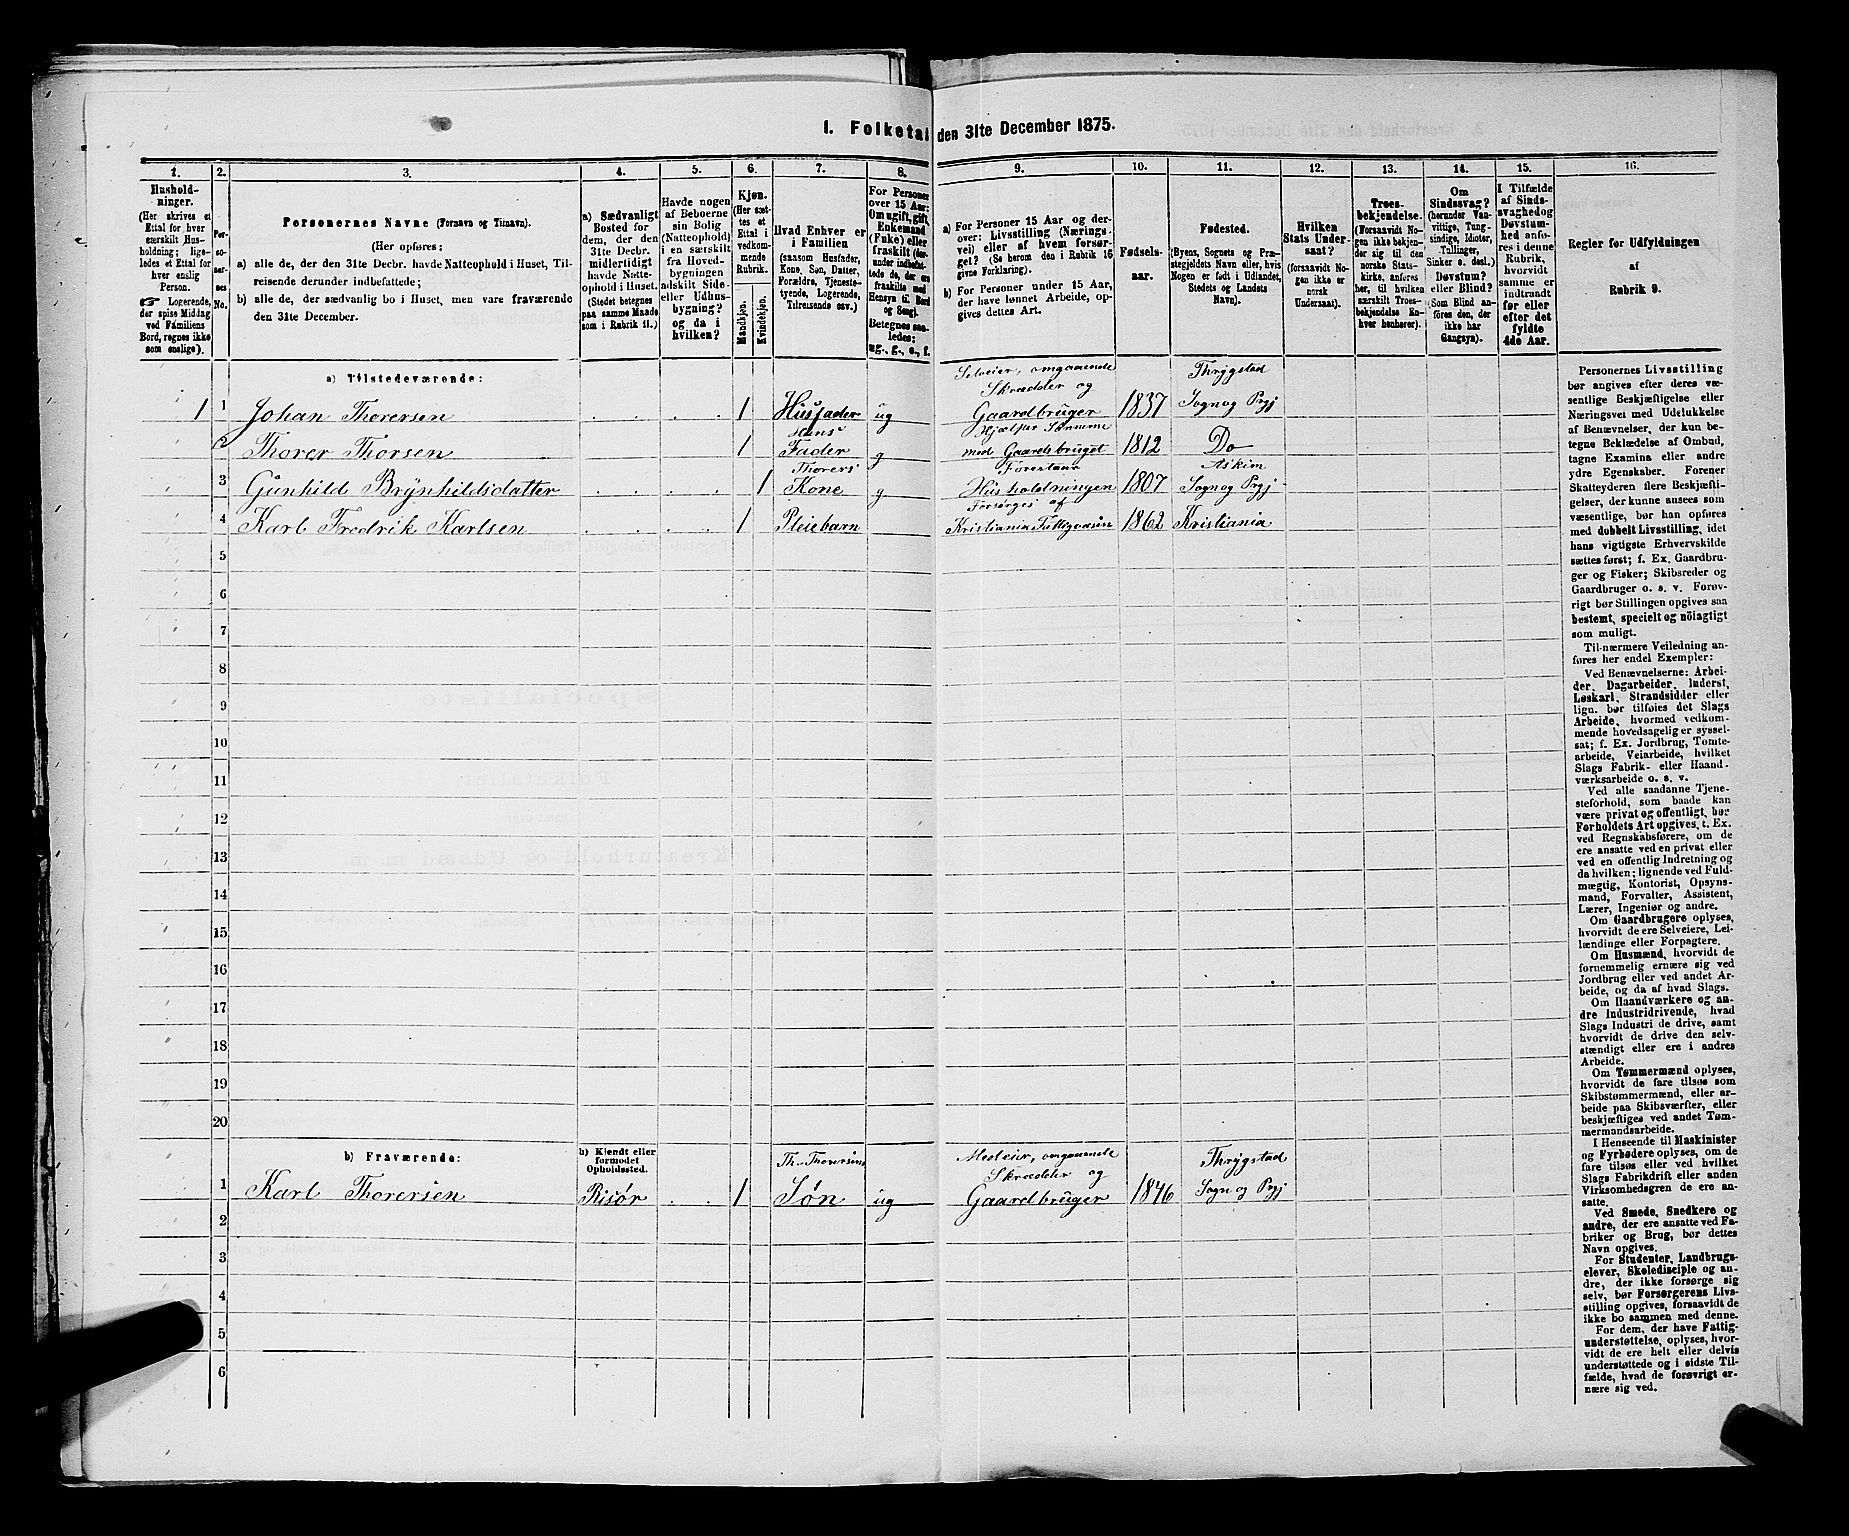 I. Folketal den 31te December 1875.
1.
2.
3.
4.
5.
6.
7.
8.
9.
10.
11.
12.
13.
14.
15.
16.
Hushold-
ninger.
(Her skrives et
Ettal for hver
særskilt Hus-
holdning; lige-
ledes et Ettal for
hver enslig
Person.
☞ Logerende,
der spise Middag
ved Familiens
Bord, regnes ikke
som enslige).
Per-
so-
ner-
nes
No.
Personernes Navne (Fornavn og Tilnavn).
(Her opføres:
a) alle de, der den 31te Decbr. havde Natteophold i Huset, Til-
reisende derunder indbefattede;
b) alle de, der sædvanlig bo i Huset, men vare fraværende
den 31te December.
a) Sædvanligt
Bosted for
dem, der den
31te Decbr.
midlertidigt
havde Natte-
ophold i Huset.
(Stedet betegnes
paa samme Maade
som i Rubrik 11.)
Havde nogen
af Beboerne
sin Bolig
(Natteophold)
i en særskilt
fra Hoved-
bygningen
adskilt Side-
eller Udhus-
bygning?
og da i
hvilken?
Kjøn.
(Her sæt-
tes et
Ettal i
vedkom-
mende
Rubrik.
Mandkjøn.
Kvindekjøn.
Hvad Enhver er
i Familien
(saasom Husfader,
Kone, Søn, Datter,
Forældre, Tjeneste-
tyende, Logerende,
Tilreisende osv.)
For Personer
over 15 Aar:
Om ugift, gift,
Enkemand
(Enke) eller
fraskilt (der-
under indbefat-
tede de, der ere
fraskilte med
Hensyn til Bord
og Seng).
Betegnes saa-
ledes:
ug., g., e., f.
a) For Personer 15 Aar og der-
over: Livsstilling (Nærings-
vei) eller af hvem forsør-
get? (Se herom den i Rubrik 16
givne Forklaring).
b) For Personer under 15 Aar,
der have lønnet Arbeide, op-
gives dettes Art.
Fødsels-
aar.
Fødested.
(Byens, Sognets og Præ-
stegjeldets Navn eller, hvis
Nogen er født i Udlandet,
Stedets og Landets
Navn).
Hvilken
Stats Under-
saat?
(forsaavidt No-
gen ikke er
norsk
Undersaat).
Troes-
bekjendelse.
(Forsaavidt No-
gen ikke bekjen-
der sig til den
norske Stats-
kirke, anføres
her, til hvilken
særskilt Troes-
bekjendelse En-
hver henhører).
Om
Sindssvag?
(herunder Van-
vittige, Tung-
sindige, Idioter,
Tullinger,
Sinker o. desl.)
Døvstum?
eller Blind?
(Som Blind an-
føres den, der
ikke har
Gangsyn).
I Tilfælde
af Sinds-
svaghed og
Døvstum-
hed anfø-
res i denne
Rubrik,
hvorvidt
samme er
indtraadt
før eller
efter det
fyldte
4de Aar.
Regler for Udfyldningen
af
Rubrik 9.
a) Tilstedeværende:
1 1 Johan Thorersen 1 Husfader ug Selveier, omgaaende Skrædder og Gaardbruger 1837 Thrygstad Sogn og Prgj
2 Thorer Thorsen 1 Hans Fader g Hjælper Sønnerne med Gaardsbruget 1812 Do
3 Gunhild Brynhildsdatter 1 Thorers Kone g Forestaar Husholdningen 1807 Askim Sogn og Prgj
4 Karl Fredrik Karlsen 1 Pleiebarn Forsørges af Kristiania Fattigvæsen 1862 Kristiania
5
6
7
8
9
10
11
12
13
14
15
16
17
18
19
20
b) Fraværende:
b) Kjendt eller
formodet
Opholdssted.
1 Karl Thorersen Risør 1 Th. Thorersens Søn ug Medeier, omgaaende Skrædder og Gaardbruger 1846 Thrygstad Sogn og Prgj
2
3
4
5
6
Personernes Livsstilling
bør angives efter deres væ-
sentlige Beskjæftigelse eller
Næringsvei med Udelukkelse
af Benævnelser, der kun be-
tegne Beklædelse af Ombud,
tagne Examina eller andre
ydre Egenskaber. Forener
Skatteyderen flere Beskjæfti-
gelser, der kunne ansees som
væsentlige, bør han opføres
med dobbelt Livsstilling, idet
hans vigtigste Erhvervskilde
sættes først; f. Ex. Gaardbru-
ger og Fisker; Skibsreder og
Gaardbruger o. s. v. Forøv-
rigt bør Stillingen opgives saa
bestemt, specielt og nöiagtigt
som muligt.
Til nærmere Veiledning an-
føres her endel Exempler:
Ved Benævnelserne: Arbei-
der, Dagarbeider, Inderst,
Løskarl, Strandsidder eller
lign. bør tilføies det Slags
Arbeide, hvormed vedkom-
mende hovedsagelig er syssel-
sat; f. Ex. Jordbrug, Tomte-
arbeide, Veiarbeide, hvilket
Slags Fabrik- eller Haand-
værksarbeide o. s. v.
Ved alle saadanne Tjene-
steforhold, som baade kan
være privat og offentligt, bør
Forholdets Art opgives, t. Ex.
ved Regnskabsførere, om de
ere ansatte ved en privat eller
ved en offentlig Indretning og
da hvilken; lignende ved Fuld-
mægtig, Kontorist, Opsyns-
mand, Forvalter, Assistent,
Lærer, Ingeniør og andre.
Om Gaardbrugere oplyses,
hvorvidt de ere Selveiere, Lei-
lændinge eller Forpagtere.
Om Husmænd, hvorvidt de
fornemmelig ernære sig ved
Jordbrug eller ved andet Ar-
beide, og da af hvad Slags.
Om Haandværkere og an-
dre Industridrivende, hvad
Slags Industri de drive, samt
hvorvidt de drive den selv-
stændigt eller ere i andres
Arbeide.
Om Tømmermænd oplyses,
hvorvidt de fare tilsøs som
Skibstømmermænd, eller ar-
beide paa Skibsværfter, eller
beskjæftiges ved andet Tøm-
mermandsarbeide.
I Henseende til Maskinister
og Fyrbødere oplyses, om de
fare tilsøs eller ved hvilket
Slags Fabrikdrift eller anden
Virksomhedsgren de ere an-
satte.
Ved Smede, Snedkere og
andre, der ere ansatte ved Fa-
briker og Brug, bør dettes
Navn opgives.
For Studenter, Landbrugs-
elever, Skoledisciple og an-
dre, der ikke forsørge sig
selv, bør Forsørgerens Livs-
stilling opgives, forsaavidt de
ikke bo sammen med denne.
For dem, der have Fattig-
understøttelse, oplyses, hvor-
vidt de ere helt eller delvis
understøttede og i sidste Til-
fælde, hvad de forøvrigt er-
nære sig ved.